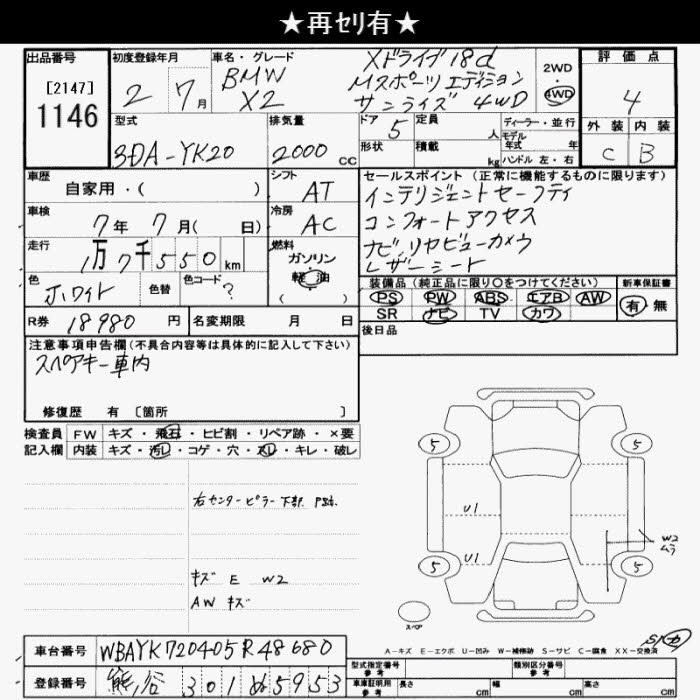 ★再ｾﾘ有★
出品番号
[2147]
1146
初度登録年月
2 7月
車名・グレード
BMW
X2
Xドライブ18d
Mスポーツエディション
サンライズ 4WD
2WD
・
4WD
評価点
4
外装 内装
C B
型式
3DA-YK20
排気量
2000 CC
ドア 5
形状
定員 人
積載 kg
ディーラー・並行
モデル
年式 年
ハンドル 左・右
車歴
自家用・( )
シフト
AT
車検
7年7月( 日)
冷房
AC
走行
1万7千550 km
燃料
ガソリン
軽油
( )
色
ホワイト
色替
色コード
?
R券 18980 円
名変期限 月 日
セールスポイント (正常に機能するものに限ります)
インテリジェントセーフティ
コンフォートアクセス
ナビ,リヤビューカメラ
レザーシート
装備品 (純正品に限り○をつけてください)
PS PW ABS エアB AW
SR ナビ TV カワ
新車保証書
有・無
後日品
注意事項申告欄(不具合内容等は具体的に記入して下さい)
スペアキー車内
修復歴 有 〔箇所 〕
検査員 FW キズ・飛石・ヒビ割・リペア跡・×要
記入欄 内装 キズ・汚レ・コゲ・穴・スレ・キレ・破レ
右センターピラー下部
キズ E W2
AW キズ
5 5
U1
U1
W2
ムラ
5 5
スペア
A-キズ E-エクボ U-凹み W-補修跡 S-サビ C-腐食 XX-交換済
車台番号 WBAYK720405R48680
登録番号 熊谷 301 ぬ5953
型式指定番号
参考
類別区分番号
参考
車庫証明用
参考
長さ cm 幅 cm 高さ cm